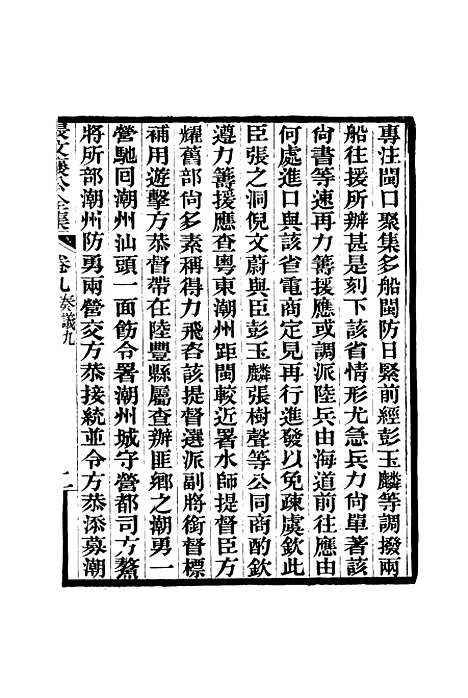 專注閩口聚集多船閩防日緊前經彭玉麟等調撥兩
船往援所辦甚是刻下該省情形尤急兵力尙單著該
尙書等速再力籌援應或調派陸兵由海道前往應由
何處進口與該省電商定見再行進發以免疎虞欽此
臣張之洞倪文蔚與臣彭玉麟張樹聲等公同商酌欽
遵力籌援應查粵東潮州距閩較近署水師提督臣方
耀舊部尙多素稱得力飛咨該提督選派副將銜督標
補用遊擊方恭督帶在陸豐縣屬查辦匪鄕之潮勇一
營馳回潮州汕頭一面飭令署潮州城守營都司方鰲
將所部潮州防勇兩營交方恭接統並令方恭添募潮
張文襄公全集 卷九 奏議九 二